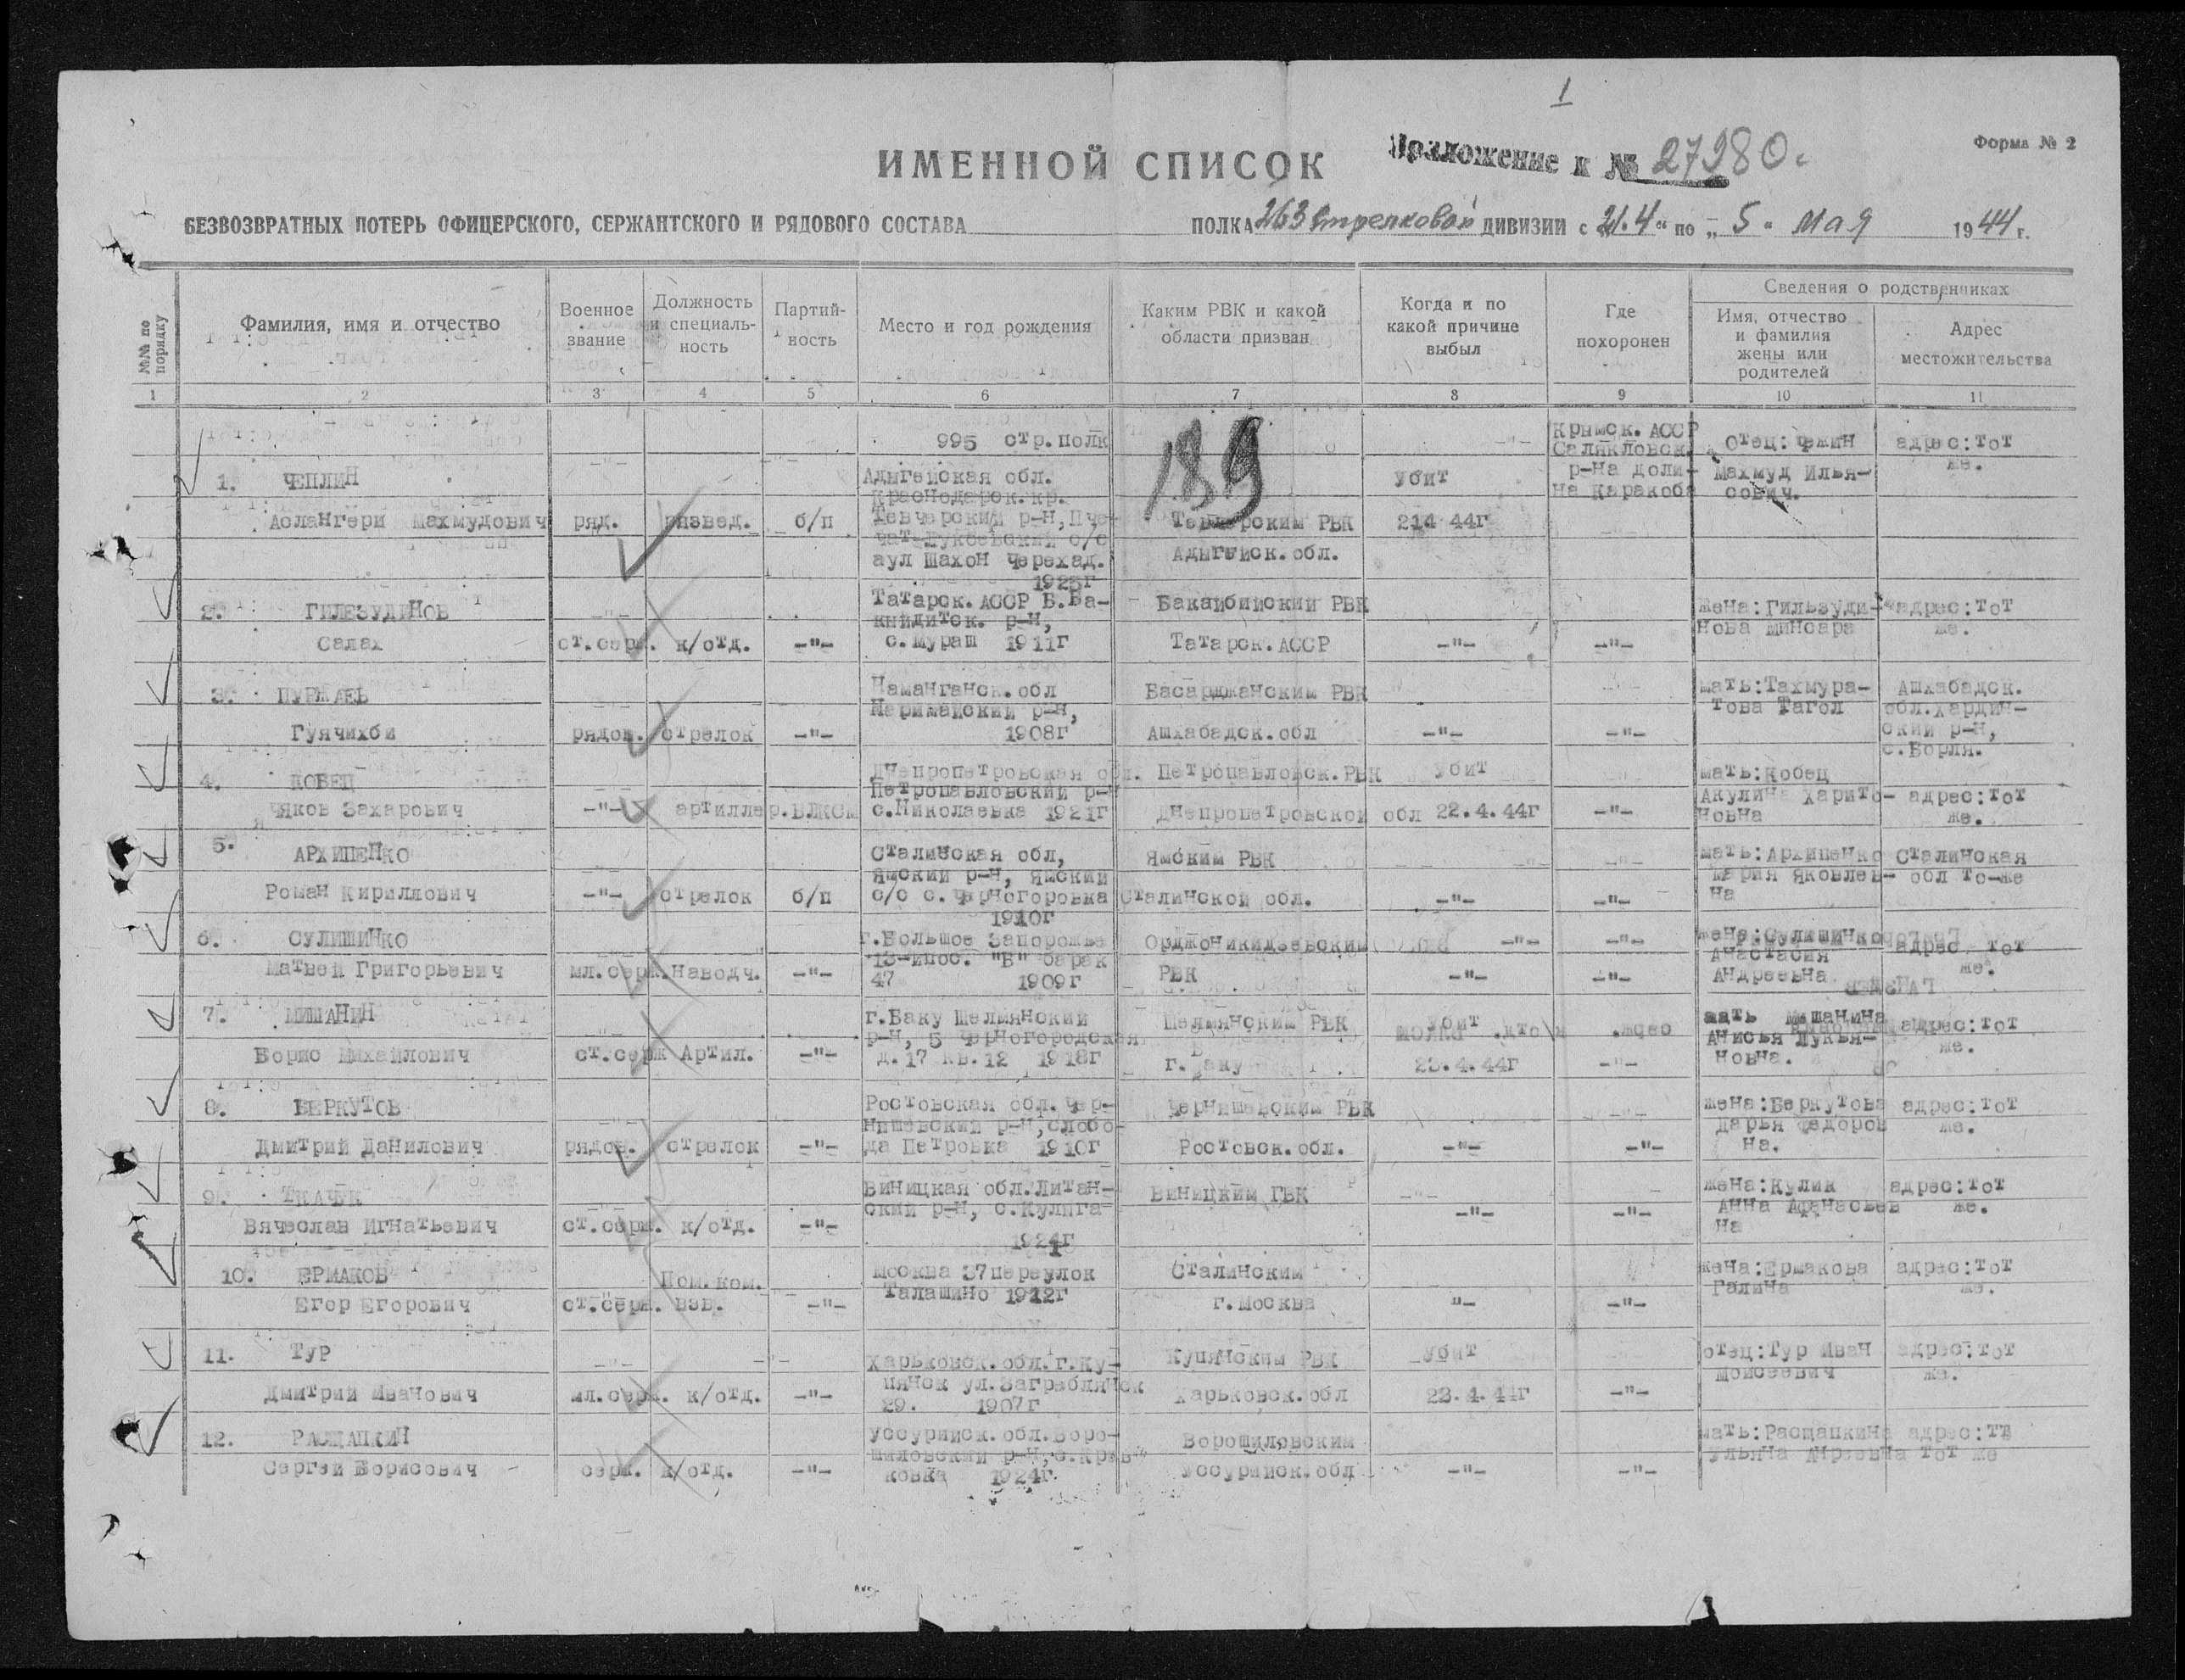 1
ИМЕННОЙ СПИСОК
Приложение к № 27980с
Форма № 2
БЕЗВОЗВРАТНЫХ ПОТЕРЬ ОФИЦЕРСКОГО, СЕРЖАНТСКОГО И РЯДОВОГО СОСТАВА ПОЛКА 263 стрелковой ДИВИЗИИ с 21.4 " по „ 5 " мая 1944 г.
№№ по порядку
Фамилия, имя и отчество
Военное звание
Должность и специальность
Партий-ность
Место и год рождения
Каким РВК и какой области призван
Когда и по какой причине выбыл
Где похоронен
Сведения о родственниках
Имя, отчество и фамилия жены или родителей
Адрес местожительства
1 2 3 4 5 6 7 8 9 10 11
995 стр.полк
189
1. ЧЕПЛИН
Аслангери Махмудович ряд. развед. б/п
Адыгейская обл.
Краснодарск.кр.
аул Шахон Черехад.
1925г
РВК
Адыгейск.обл.
убит
214 44г
Крымск.АССР
р-на доли-
на Каракоба
Отец:
Махмуд Илья-
сович.
адрес:тот
же.
2. ГИЛЕЗУДИНОВ
Салах ст.серж. к/отд. -"-
Татарск.АССР Б.Ба-
р-н,
с.Мураш 1911г
Бакайбийский РВК
Татарск.АССР
-"- -"-
жена:Гильзуди-
нова Минсара
адрес:тот
же.
3. ПУРЖАЕВ
Гуячихби рядов. стрелок -"-
Наманганск.обл
р-н,
1908г
Басарджанским РВК
Ашхабадск.обл
-"- -"-
мать:Тахмура-
това Тагол
Ашхабадск.
ский р-н,
с.Борля.
4. КОБЕЦ
Яков Захарович -"- артиллер.ВЛКСМ
Днепропетровская обл.
Петропавловский р-н
с.Николаевка 1921г
Петропавловск.РВК
Днепропетровской обл
убит
22.4.44г -"-
мать:Кобец
Акулина Харито-
новна
адрес:тот
же.
5. АРХИПЕНКО
Роман Кириллович -"- стрелок б/п
Сталинская обл,
Ямский р-н, Ямский
с/с с.Черногоровка
1910г
Ямским РВК
Сталинской обл.
-"- -"-
мать:Архипенко
Мария Яковлев-
на
Сталинская
обл то-же
6. СУЛИШИНКО
Матвей Григорьевич мл.серж. наводч. -"-
г.Большое Запорожье
13-й пос. "Б" барак
47 1909г
Орджоникидзевским
РВК
-"- -"-
-"- -"-
жена:Сулишинко
Анастасия
Андреевна
адрес тот
же.
7. МИШАНИН
Борис Михайлович ст.серж Артил. -"-
г.Баку Шелмянский
р-н, 5 Черногородская
д.17 кв.12 1918г
Шелмянским РВК
г.Баку
убит
23.4.44г -"-
мать Мишанина
Анисья Лукья-
новна.
адрес:тот
же.
8. БЕРКУТОВ
Дмитрий Данилович рядов. стрелок -"-
Ростовская обл.Чер-
нишевский р-н,слобо-
да Петровка 1910г
Чернишевским РВК
Ростовск.обл.
-"- -"-
жена:Беркутова
Дарья Федоров
на.
адрес:тот
же.
9. ТКАЧУК
Вячеслав Игнатьевич ст.серж. к/отд. -"-
Виницкая обл.Литан-
ский р-н, с.Кулига
1924г
Виницким ГВК
-"- -"-
жена:Кулик
Анна Афанасьев
на
адрес:тот
же.
10. ЕРМАКОВ
Егор Егорович ст.серж. Пом.ком. взв. -"-
Москва 37переулок
Талашино 1912г
Сталинским
г.Москва
"- -"-
жена:Ермакова
Галина
адрес:тот
же.
11. ТУР
Дмитрий Иванович мл.серж. к/отд. -"-
Харьковск.обл.г.Ку-
пянск ул.Заграблянск
29. 1907г
Купянским РВК
Харьковск.обл
убит
23.4.44г -"-
отец:Тур Иван
Моисеевич
адрес:тот
же.
12. РАСЩАПКИН
Сергей Борисович серж. к/отд. -"-
Уссурийск.обл.Воро-
шиловский р-н,с.
1924г.
Ворошиловским
Уссурийск.обл
-"- -"-
мать:Расщапкина
Ульяна
адрес:
тот же